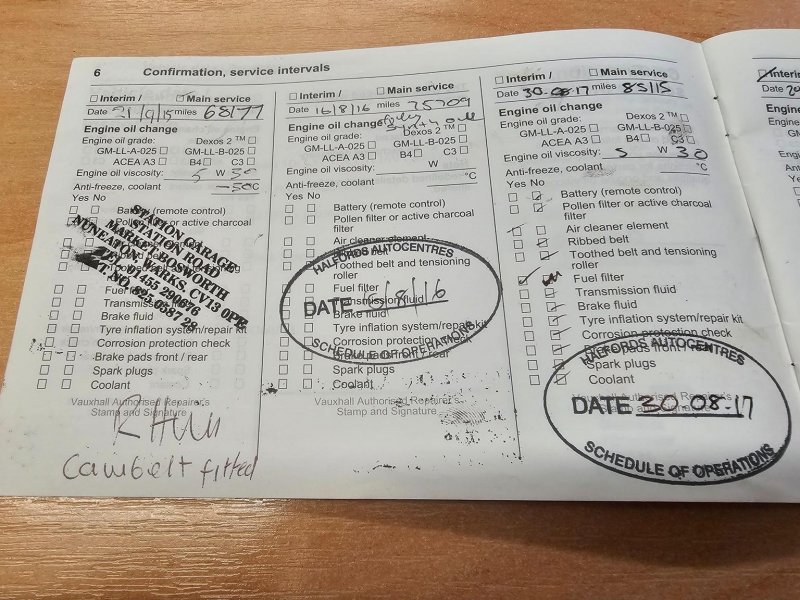 6 Confirmation, service intervals
Interim / Main service
Date 21/9/15 miles 68177
Engine oil change
Engine oil grade: Dexos 2 ™
GM-LL-A-025 GM-LL-B-025
ACEA A3 B4 C3
Engine oil viscosity: 5 W 30
Anti-freeze, coolant -50°C
Yes No
Battery (remote control)
Pollen filter or active charcoal
STATION GARAGE
STATION ROAD
MARKET BOSWORTH
NUNEATON, WARKS, CV13 0PE
Transmission
Brake fluid
Tyre inflation system/repair kit
Corrosion protection check
Brake pads front / rear
Spark plugs
Coolant
Vauxhall Authorised Repairer's
Stamp and Signature
Cambelt fitted
Interim / Main service
Date 16/8/16 miles 75709
Engine oil change
Engine oil grade: Dexos 2 ™
GM-LL-A-025 GM-LL-B-025
ACEA A3 B4 C3
Engine oil viscosity: W
Anti-freeze, coolant °C
Yes No
Battery (remote control)
Pollen filter or active charcoal
filter
Air cleaner element
belt
Toothed belt and tensioning
roller
Fuel filter
Transmission fluid
Brake fluid
Tyre inflation system/repair kit
Corrosion protection check
Brake pads front / rear
Spark plugs
Coolant
HALFORDS AUTOCENTRES
DATE 16/8/16
SCHEDULE OF OPERATIONS
Vauxhall Authorised Repairer's
Stamp and Signature
Interim / Main service
Date 30.08.17 miles 85115
Engine oil change
Engine oil grade: Dexos 2 ™
GM-LL-A-025 GM-LL-B-025
ACEA A3 B4 C3
Engine oil viscosity: 5 W 30
Anti-freeze, coolant °C
Yes No
Battery (remote control)
Pollen filter or active charcoal
filter
Air cleaner element
Ribbed belt
Toothed belt and tensioning
roller
Fuel filter
Transmission fluid
Brake fluid
Tyre inflation system/repair kit
Corrosion protection check
pads front /
Spark plugs
Coolant
HALFORDS AUTOCENTRES
DATE 30.08.17
SCHEDULE OF OPERATIONS
Interim
Date
Engine
Engine
GM-
Engine
Anti-
Yes